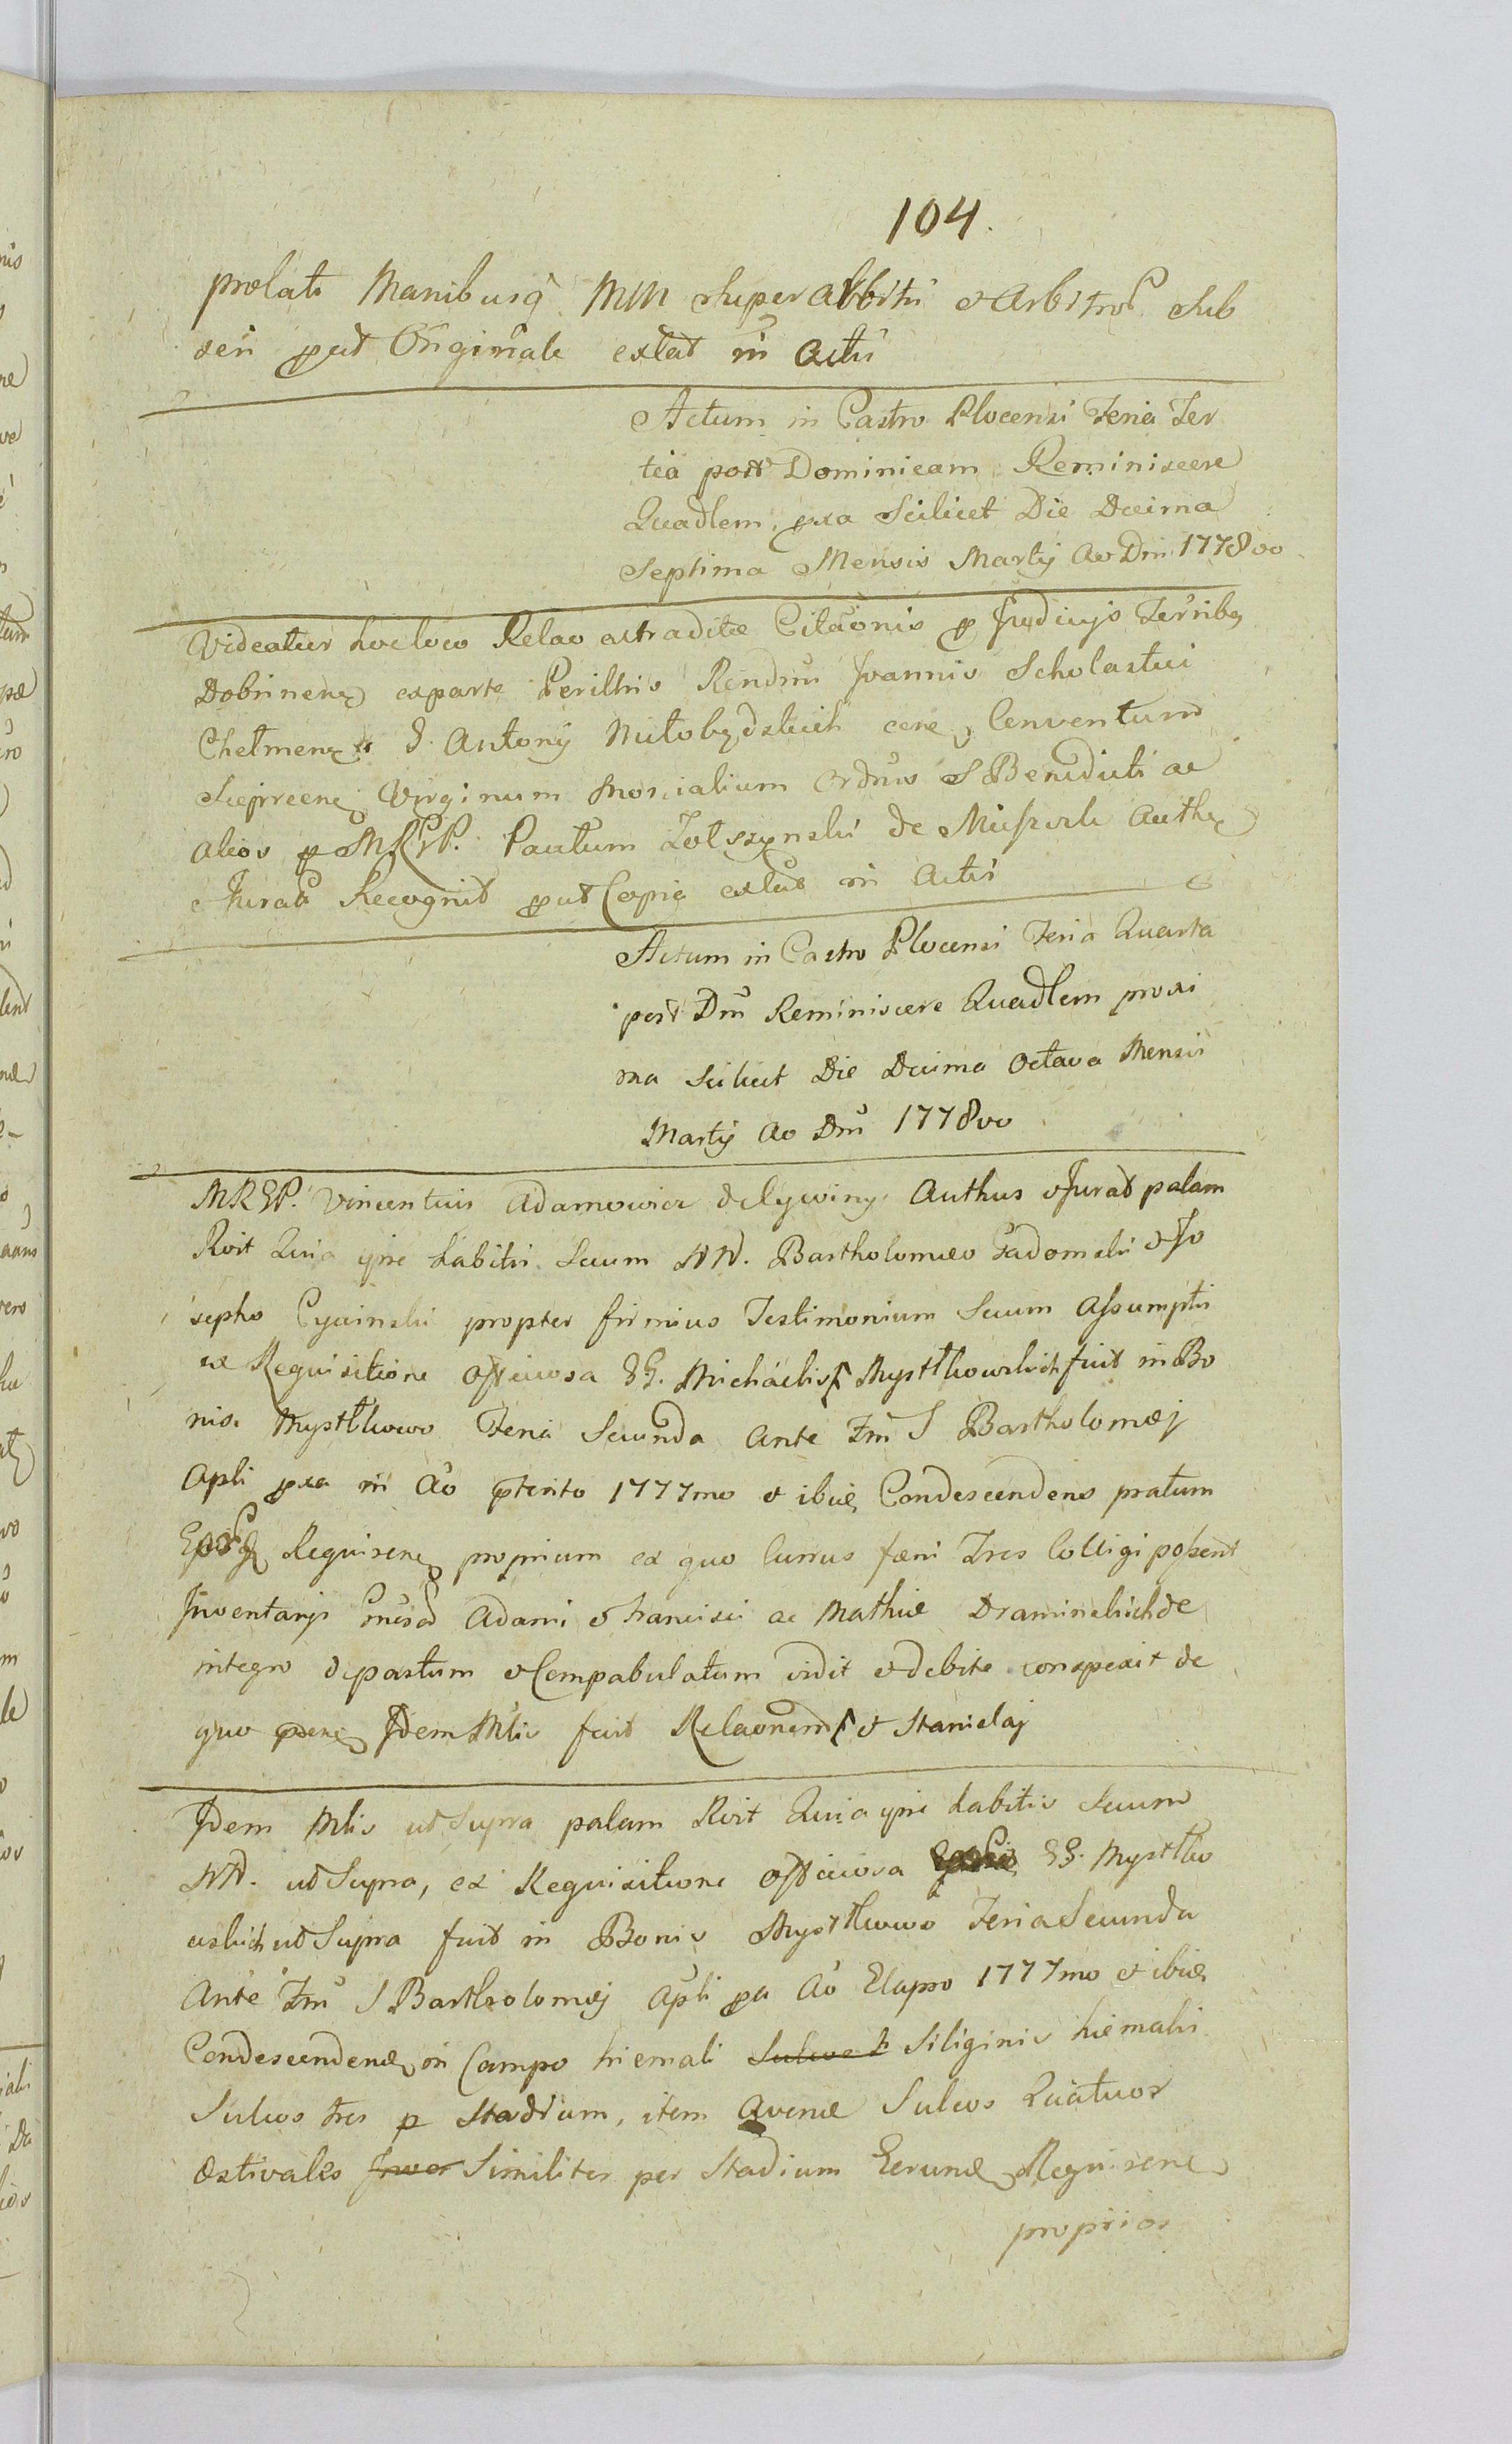 104.
prolati Manibusq MM Superarbitri & Arbitror Sub
scri put Originale extat in Actis
Actum in Castro Plocensi Feria Ter
tia post Dominicam Reminiscere
Quadlem pxa Scilicet Die Decima
Septima Mensis Martij Ao Dni 1778vo
Videatur hocloco Relao actraditæ Citaonis p Judicijs Terribq
Dobrinen exparte Perillris Rendmi Joannis Scholastici
Chełmen & G. Antonij Miłobędzkich cone Conventum
Sieprcen Virginum Monialium Ordinis S Benedicti ac
alios p MREP. Paulum Zołszynski de Auth
Jurat Recognit put Copia extat in Actis
Actum in Castro Plocensi Feria Quarta
post Dni Reminiscere Quadlem proxi
ma Scilicet Die Decima Octava Mensis
Martij Ao Dni 1778vo
MREP. Vincentius Adamowicz Authus & Jurat palam
Roit Quia ipse habitis Secum NN. Bartholomæo Gadomski & Jo
sepho Cywinski propter firmius Testimonium Secum Assumptis
ex Requisitione officiosa GG. Michaelis Mysttkowskich fuit in Bo
nis Mysttkowo Feria Secunda Ante Fm S Bartholomæj
Apli pxa in Ao pterito 1777mo & ibiq Condescendens pratum
Requiren proprium ex quo Currus fæni Tres Colligi possent
Inventarijs Adami & Francisci ac Mathiæ Draminskich de
integro depastum & Compabulatum vidit & debite conspexit de
quo Idem Mtis fecit Relaonem & Stanislaj
Idem Mtis ut Supra palam Roit Quia ipse habitis Secum
NN. ut Supra, ex Requisitione officiosa GG. Mysttko
wskich ut Supra fuit in Bonis Mysttkowo Feria Secunda
Ante Fm S Bartholomæj Apli pa Ao Elapso 1777mo & ibiq
Condescenden in Campo hiemali Siliginis hiemalis
Sulcos tres p Stadium, item Avenæ Sulcos Quatuor
Æstivales Similiter per Stadium Eorund Requiren
proprios